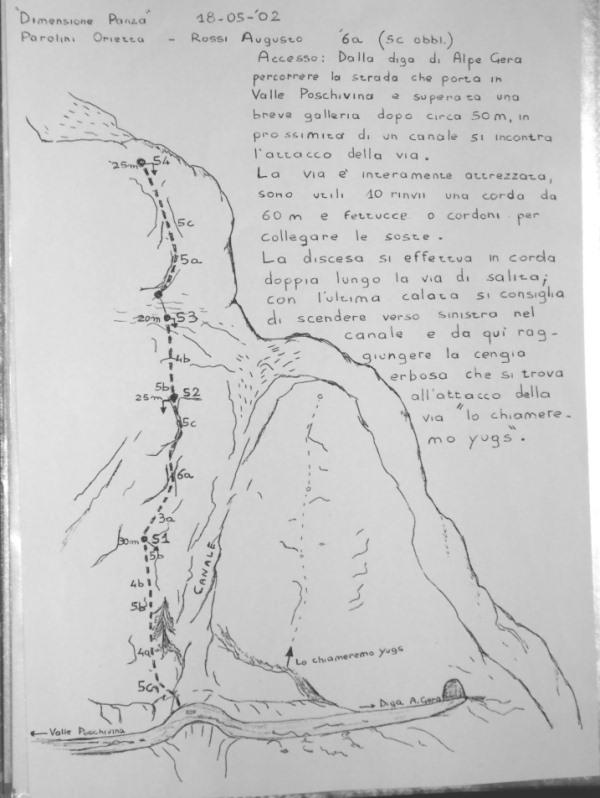 "Dimensione Panza" 18-05-'02
Parolini Orietta - Rossi Augusto 6a (5c obbl.)
Accesso: Dalla diga di Alpe Gera
percorrere la strada che porta in
Valle Poschivina e superata una
breve galleria dopo circa 50m, in
prossimità di un canale si incontra
l'attacco della via.
La via e' interamente attrezzata,
sono utili 10 rinvii una corda da
60 m e fettucce o cordoni per
collegare le soste.
La discesa si effettua in corda
doppia lungo la via di salita;
con l'ultima calata si consiglia
di scendere verso sinistra nel
canale e da qui rag-
giungere la cengia
erbosa che si trova
all'attacco della
via "lo chiamere-
mo yugs".
25m S4
5c
5a
20m S3
4b
5b
25m S2
5c
6a
3a
30m S1
5b
4b
5b
4a
5c
CANALE
Lo chiameremo yugs
→ Diga A. Gera
← Valle Poschivina